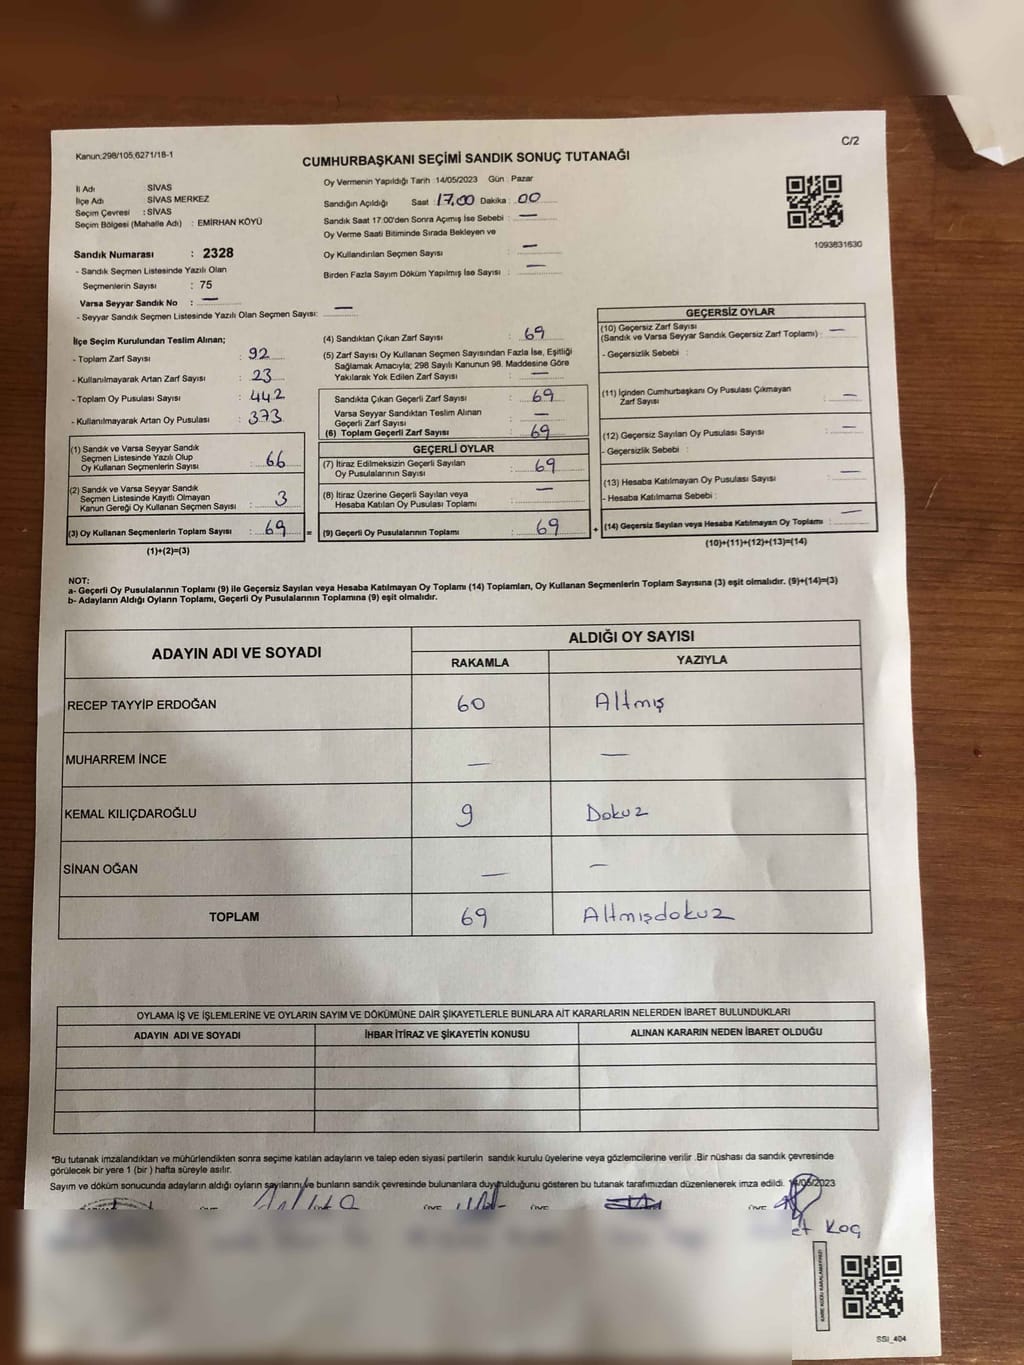 Kanun:298/105,6271/18-1
C/2
CUMHURBAŞKANI SEÇİMİ SANDIK SONUÇ TUTANAĞI
İl Adı SİVAS
İlçe Adı SİVAS MERKEZ
Seçim Çevresi : SİVAS
Seçim Bölgesi (Mahalle Adı) : EMİRHAN KÖYÜ
Oy Vermenin Yapıldığı Tarih :14/05/2023 Gün : Pazar
Sandığın Açıldığı Saat : 17.00 Dakika : 00
Sandık Saat 17:00'den Sonra Açımış İse Sebebi : —
Oy Verme Saati Bitiminde Sırada Bekleyen ve
Oy Kullandırılan Seçmen Sayısı : —
Birden Fazla Sayım Döküm Yapılmış İse Sayısı : —
1093831630
Sandık Numarası : 2328
- Sandık Seçmen Listesinde Yazılı Olan
Seçmenlerin Sayısı : 75
Varsa Seyyar Sandık No : —
- Seyyar Sandık Seçmen Listesinde Yazılı Olan Seçmen Sayısı: —
İlçe Seçim Kurulundan Teslim Alınan;
- Toplam Zarf Sayısı : 92
- Kullanılmayarak Artan Zarf Sayısı : 23
- Toplam Oy Pusulası Sayısı : 442
- Kullanılmayarak Artan Oy Pusulası : 373
(1) Sandık ve Varsa Seyyar Sandık
Seçmen Listesinde Yazılı Olup
Oy Kullanan Seçmenlerin Sayısı : 66
(2) Sandık ve Varsa Seyyar Sandık
Seçmen Listesinde Kayıtlı Olmayan
Kanun Gereği Oy Kullanan Seçmen Sayısı : 3
(3) Oy Kullanan Seçmenlerin Toplam Sayısı : 69 =
(1)+(2)=(3)
(4) Sandıktan Çıkan Zarf Sayısı : 69
(5) Zarf Sayısı Oy Kullanan Seçmen Sayısından Fazla İse, Eşitliği
Sağlamak Amacıyla; 298 Sayılı Kanunun 98. Maddesine Göre
Yakılarak Yok Edilen Zarf Sayısı : —
Sandıkta Çıkan Geçerli Zarf Sayısı : 69
Varsa Seyyar Sandıktan Teslim Alınan
Geçerli Zarf Sayısı : —
(6) Toplam Geçerli Zarf Sayısı : 69
GEÇERLİ OYLAR
(7) İtiraz Edilmeksizin Geçerli Sayılan
Oy Pusulalarının Sayısı : 69
(8) İtiraz Üzerine Geçerli Sayılan veya
Hesaba Katılan Oy Pusulası Toplamı : —
(9) Geçerli Oy Pusulalarının Toplamı : 69 +
GEÇERSİZ OYLAR
(10) Geçersiz Zarf Sayısı
(Sandık ve Varsa Seyyar Sandık Geçersiz Zarf Toplamı) : —
- Geçersizlik Sebebi :
(11) İçinden Cumhurbaşkanı Oy Pusulası Çıkmayan
Zarf Sayısı : —
(12) Geçersiz Sayılan Oy Pusulası Sayısı : —
- Geçersizlik Sebebi :
(13) Hesaba Katılmayan Oy Pusulası Sayısı : —
- Hesaba Katılmama Sebebi :
(14) Geçersiz Sayılan veya Hesaba Katılmayan Oy Toplamı : —
(10)+(11)+(12)+(13)=(14)
NOT:
a- Geçerli Oy Pusulalarının Toplamı (9) ile Geçersiz Sayılan veya Hesaba Katılmayan Oy Toplamı (14) Toplamları, Oy Kullanan Seçmenlerin Toplam Sayısına (3) eşit olmalıdır. (9)+(14)=(3)
b- Adayların Aldığı Oyların Toplamı, Geçerli Oy Pusulalarının Toplamına (9) eşit olmalıdır.
ADAYIN ADI VE SOYADI ALDIĞI OY SAYISI
RAKAMLA YAZIYLA
RECEP TAYYİP ERDOĞAN 60 Altmış
MUHARREM İNCE — —
KEMAL KILIÇDAROĞLU 9 Dokuz
SİNAN OĞAN — —
TOPLAM 69 Altmışdokuz
OYLAMA İŞ VE İŞLEMLERİNE VE OYLARIN SAYIM VE DÖKÜMÜNE DAİR ŞİKAYETLERLE BUNLARA AİT KARARLARIN NELERDEN İBARET BULUNDUKLARI
ADAYIN ADI VE SOYADI İHBAR İTİRAZ VE ŞİKAYETİN KONUSU ALINAN KARARIN NEDEN İBARET OLDUĞU
*Bu tutanak imzalandıktan ve mühürlendikten sonra seçime katılan adayların ve talep eden siyasi partilerin sandık kurulu üyelerine veya gözlemcilerine verilir .Bir nüshası da sandık çevresinde
görülecek bir yere 1 (bir ) hafta süreyle asılır.
Sayım ve döküm sonucunda adayların aldığı oyların sayılarını ve bunların sandık çevresinde bulunanlara duyurulduğunu gösteren bu tutanak tarafımızdan düzenlenerek imza edildi. 14/05/2023
et Koç
SSİ_404